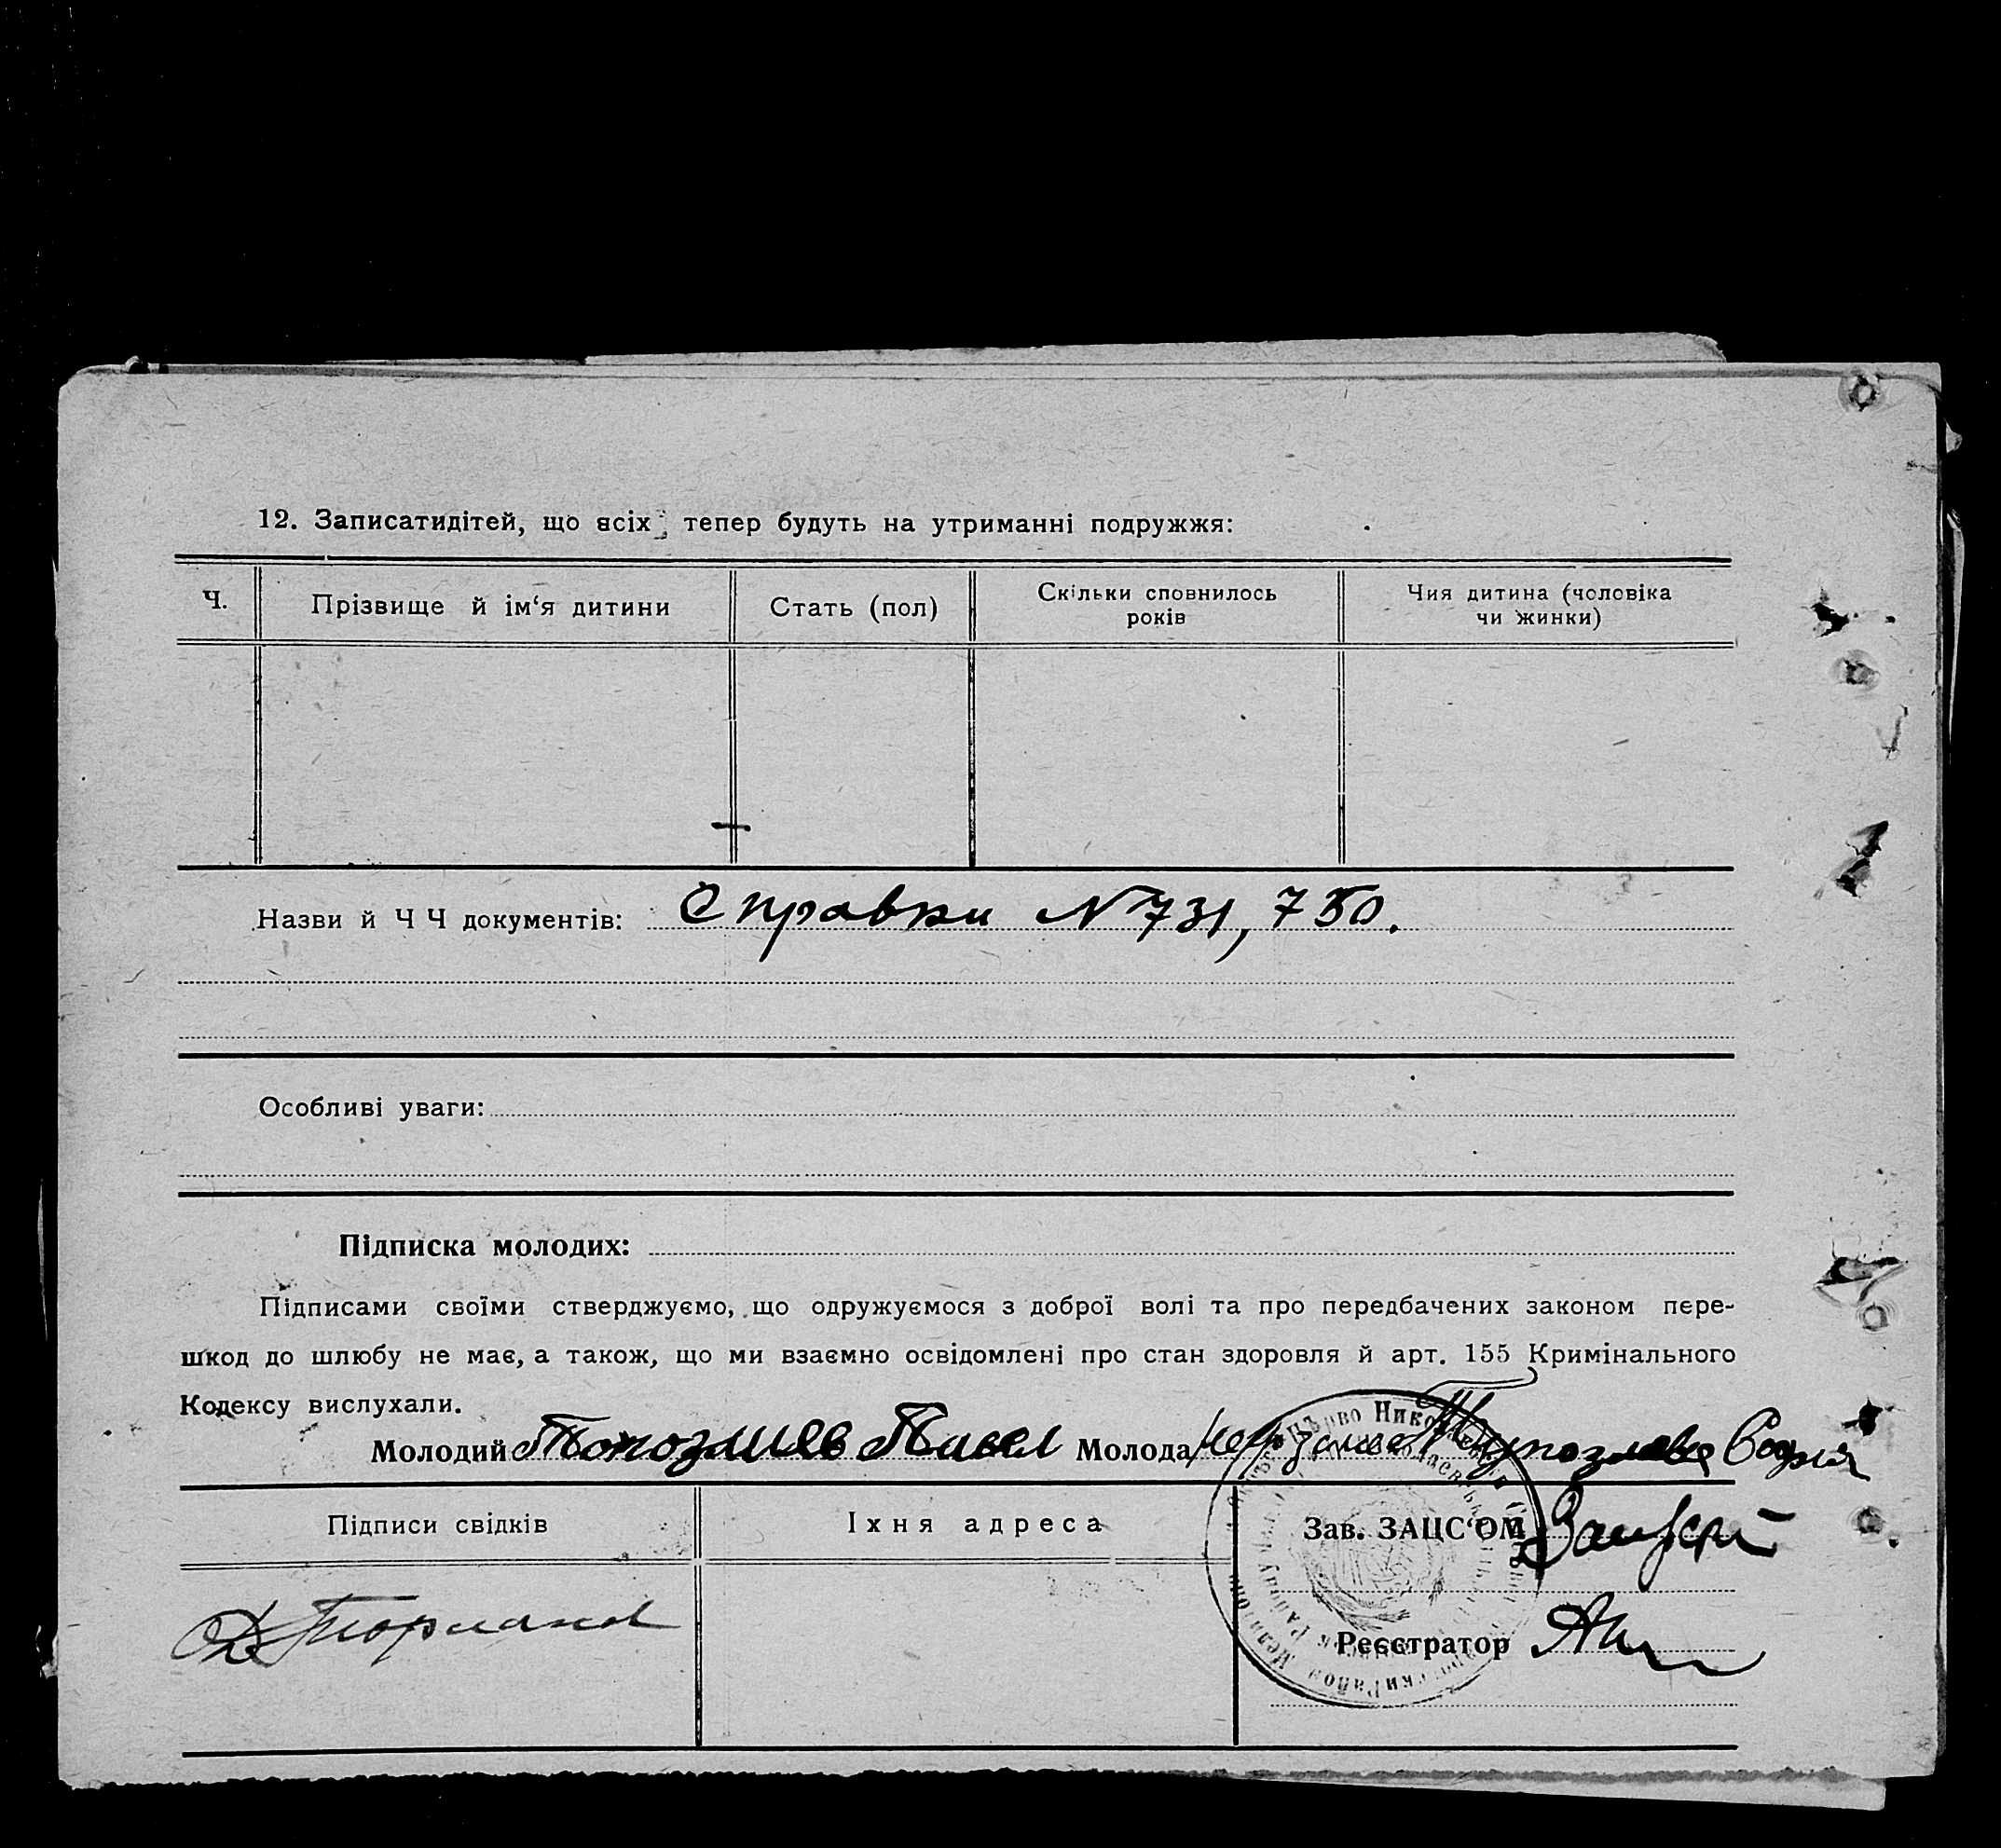 12. Записатидітей, що всіх, тепер будуть на утриманні подружжя:
Ч.
Прізвище й ім‘я дитини
Стать (пол)
Скільки сповнилось
років
Чия дитина (чоловіка
чи жинки)
Назви й Ч Ч документів: Справки N 731, 750.
Особливі уваги:
Підписка молодих:
Підписами своїми стверджуємо, що одружуємося з доброї волі та про передбачених законом пере-
шкод до шлюбу не має, а також, що ми взаємно освідомлені про стан здоровля й арт. 155 Кримінального
Кодексу вислухали.
Молодий Павел Молода София
Підписи свідків
Їхня адреса
Зав. ЗАЦС‘ОМ
Реєстратор